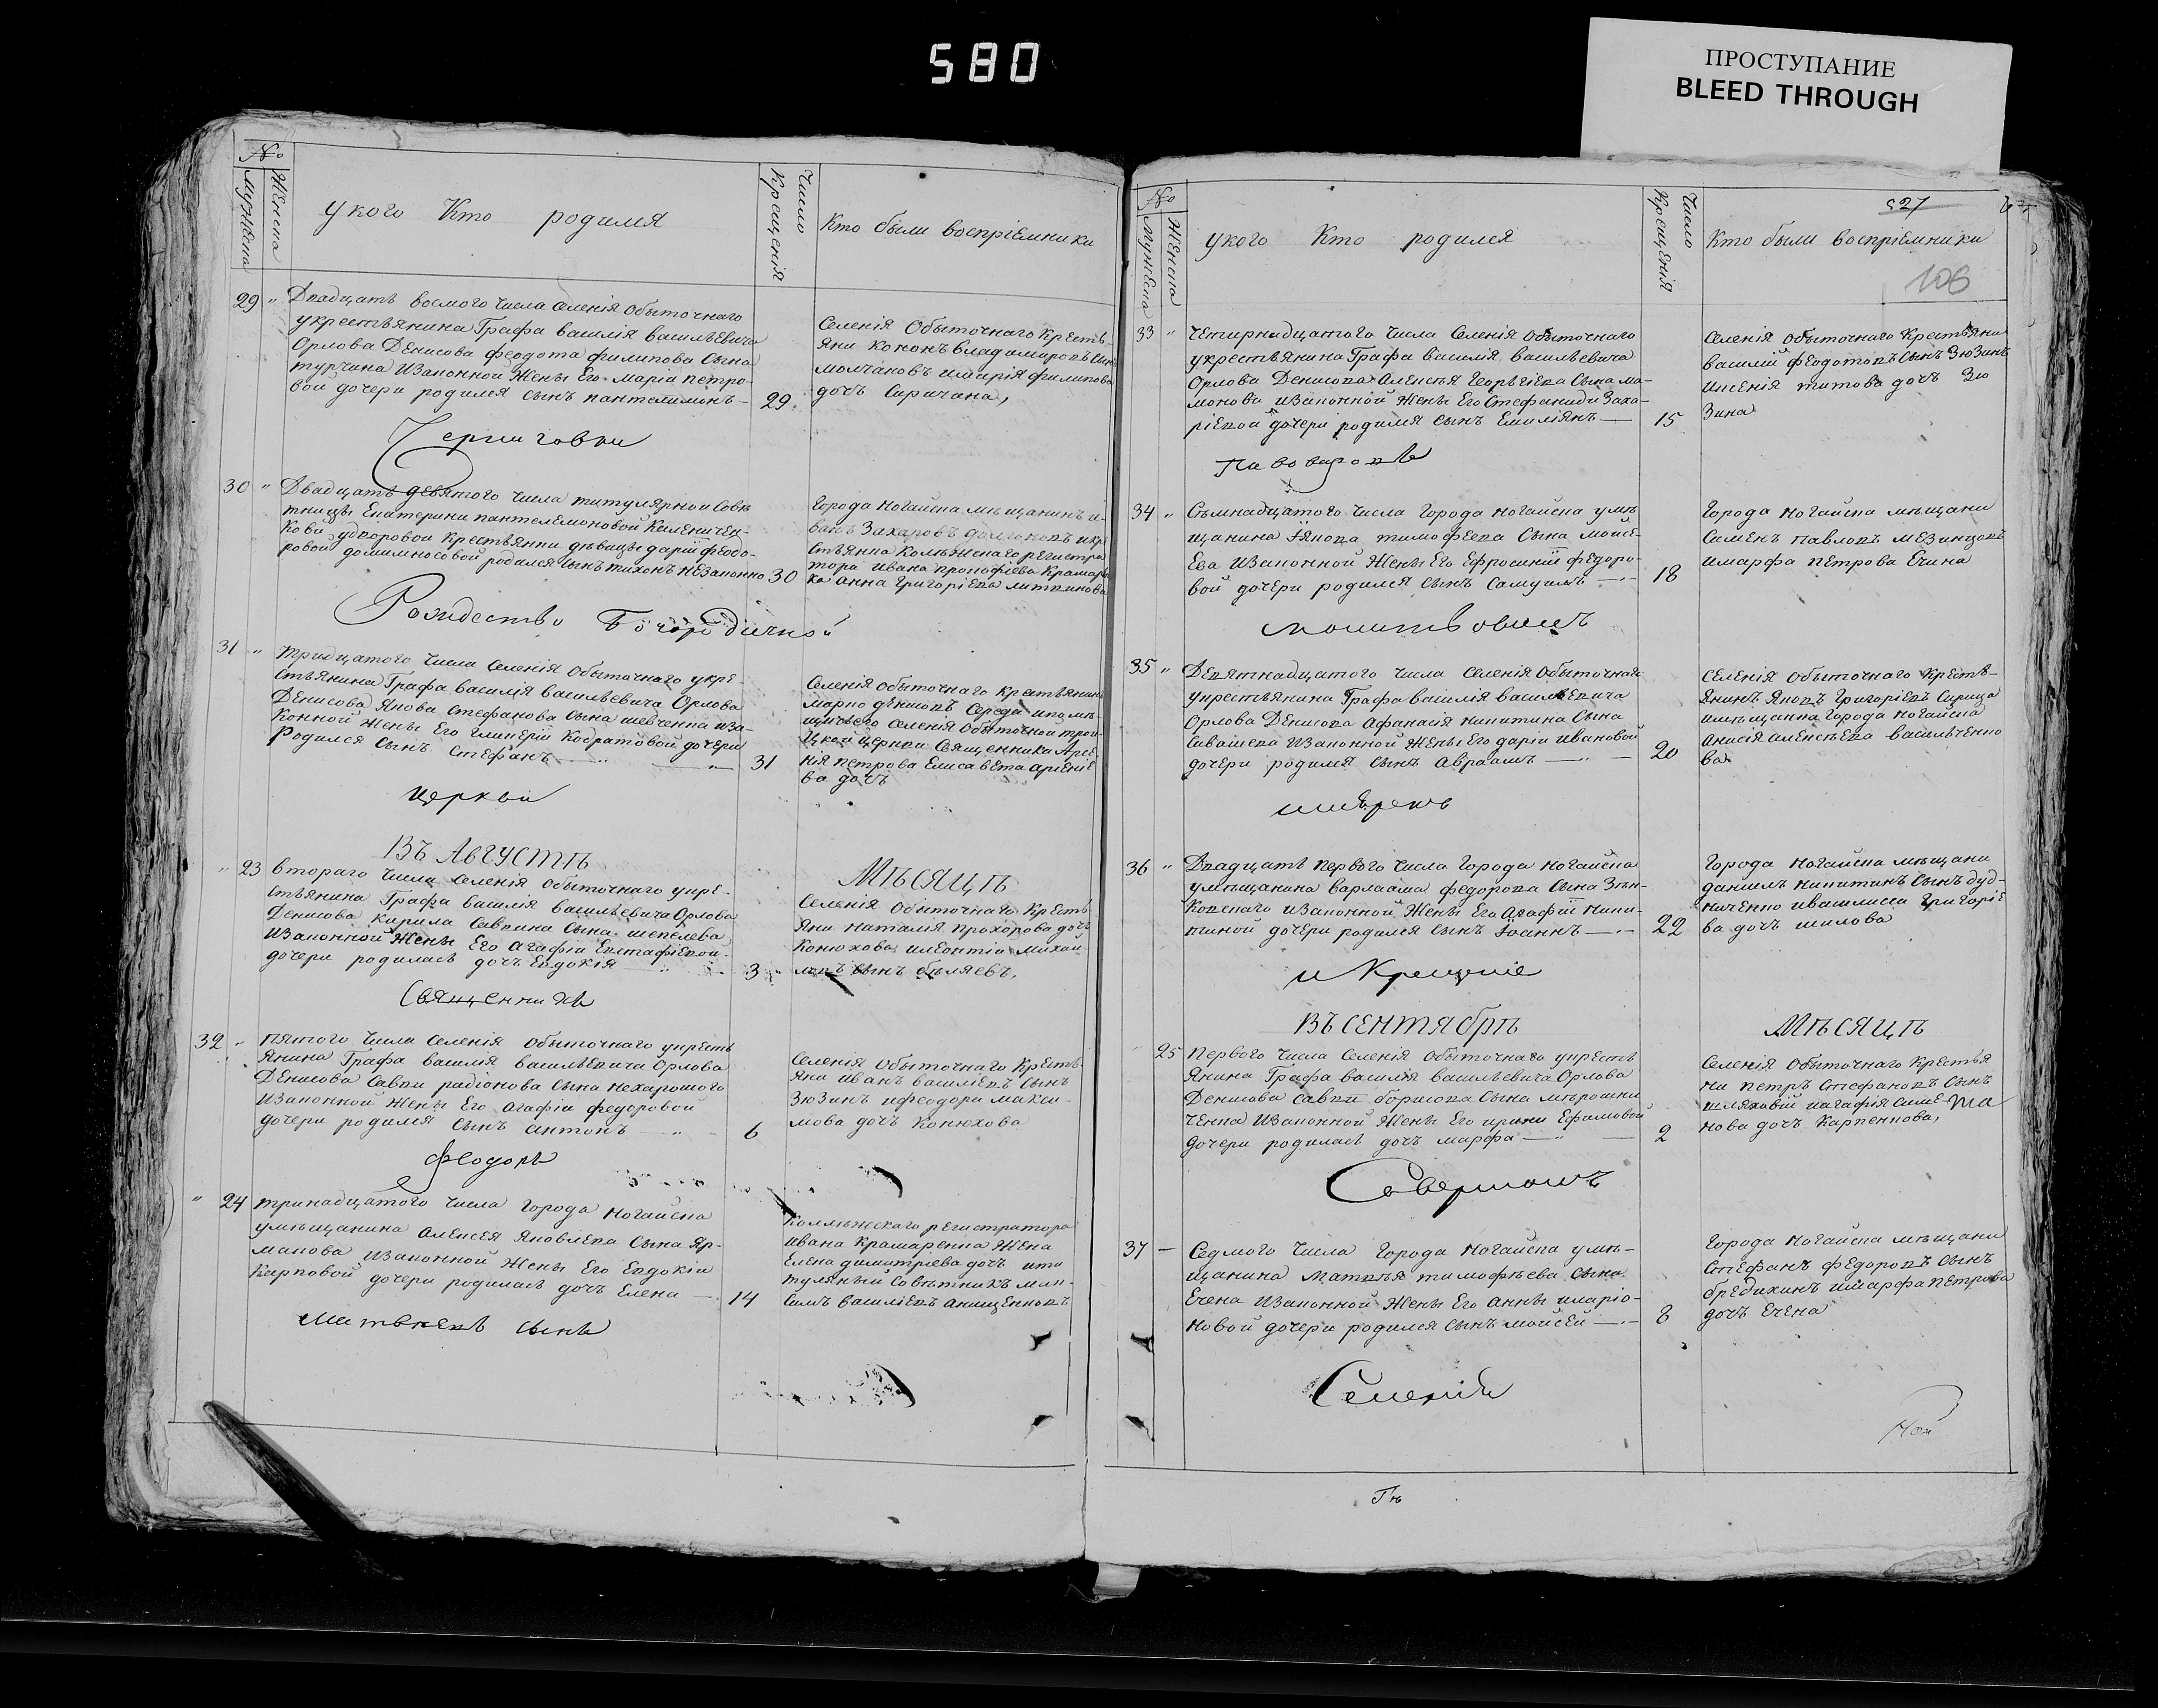 580
ПРОСТУПАНИЕ
BLEED THROUGH
№
Мужеска
Женска
у кого Кто родился
Число
Крещенія
Кто были воспріемники
29 Двадцать восмого числа Селенія Обыточнаго
укрестьянина Графа василія васильевича
Орлова Денисова феодота филипова Сына
турчина Изаконной Жены Его Маріи петро-
вой дочери родился Сынъ пантелимонъ
29
Селенія Обыточнаго Кресть-
яни Кононъ владимировъ Сынъ
молчановъ имарія филипова
дочь
30 Двадцать девятого числа титулярной Совѣ
тницы Екатерины пантелемоновой
Крестьянки дѣвицы даріи феодо-
ровой родился Сынъ тихонъ незаконно
30
Города Ногайска мѣщанинъ и-
ванъ Захаровъ
Колежскаго регистра
тора ивана прокофіева Крамарен
ка анна григоріева
Рождество Богородичной
31 тридцатого числа Селенія Обыточнаго укре-
стьянина Графа василія васильевича Орлова
Денисова Якова Стефанова Сына шевченка иза-
конной Жены Его Гликеріи Кодратовой дочери
родился Сынъ Стефанъ
31
Селенія обыточнаго Крестьянинъ
Середа ипомѣ
щичьего Селенія Обыточной трои-
цкой церкви Священника Арсе-
нія петрова Елисавета арсеніе
ва дочь
церкви
Въ Августѣ
Мѣсяцѣ
23 втораго числа Селенія Обыточнаго укре-
стьянина Графа василія васильевича Орлова
Денисова Кирила Савкина Сына шепелева
Изаконной Жены Его агафіи Евстафіевой
дочери родилась дочь Евдокія
3
Селенія Обыточнаго Кресть
яни наталія прохорова дочь
Конюхова илеонтій михай-
ловъ Сынъ бѣляевъ,
Священникъ
32 пятого числа Селенія Обыточнаго укресть
янина Графа василія васильевича Орлова
Денисова Савки радіонова Сына нехорошого
Изаконной Жены Его агафіи федоровой
дочери родился Сынъ антонъ
6
Селенія Обыточнаго Кресть-
яни иванъ василіевъ Сынъ
Зюзинъ ифеодора макси-
мова дочь Конюхова
феодоръ
24 тринадцатого числа Города Ногайска
умѣщанина алексея яковлева Сына яр-
макова Изаконной Жены Его Евдокіи
Карповой дочери родилась дочь Елена
14
Колежскаго регистратора
ивана Крамаренка Жена
Елена димитріева дочь ити
тулярный Совѣтникъ
василіевъ анищенковъ
Матвеевъ сынъ
№
Мужеска
Женска
у кого Кто родился
Число
Крещенія
527
Кто были воспріемники
106
33 Четирнадцатого числа Селенія Обыточнаго
укрестьянина Графа василія васильевича
Орлова Денисова алексѣя Георгіева Сына ма-
монова изаконной Жены Его Стефаниди Заха-
ріевой дочери родился Сынъ Емиліянъ
15
Селенія обыточнаго Крестьяни
василій феодотовъ Сынъ Зюзинъ
иксенія титова дочь Зю
зина
Пивоваровъ
34 Сѣмнадцатого числа Города Ногайска умѣ
щанина Якова тимофеева Сына мойсе-
ева Изаконной Жены Его Ефросиніи федоро-
вой дочери родился Сынъ Самуилъ
18
Города Ногайска мѣщани
Семенъ павловъ мезинцовъ
имарфа петрова Ечина
35 Девятнадцатого числа Селенія Обыточнаго
укрестьянина Графа василія васильевича
Орлова Денисова афанасія никитина Сына
Сивашева Изаконной Жены Его даріи ивановой
дочери родился Сынъ авраамъ
20
Селенія обыточнаго Кресть-
янинъ Яковъ Григоріевъ Сирица
имѣщанка Города Ногайска
анисія алексѣева васильченко
ва
36 Двадцать первого числа Города Ногайска
умѣщанина варлаама федорова Сына Зѣн-
ковскаго изаконной Жены Его агафіи ники-
тиной дочери родился Сынъ Іоаннъ
22
Города Ногайска мѣщани
даниилъ никитинъ Сынъ дуд-
ниченко ивасилиса григоріе
ва дочь шилова
и Крещеніе
Въ Сентябрѣ
Мѣсяцѣ
25 Первого числа Селенія Обыточнаго укресть
янина Графа василія васильевича Орлова
Денисова Савки борисова Сына мѣрошни
ченка Изаконной Жены Его ирини Ефимовой
дочери родилась дочь марфа
2
Селенія Обыточнаго Крестья
ни петръ Стефановъ Сынъ
шляховій иагафія Симе
нова дочь Карпенкова,
Совершалъ
37 Седмого числа Города Ногайска умѣ-
щанина Матвѣя тимофѣева Сына
Ечена Изаконной Жены Его анны иларіо-
новой дочери родился Сынъ мойсей
8
Города Ногайска мѣщани
Стефанъ федоровъ Сынъ
бредихинъ имарфа петрова
дочь Ечена
Селенія